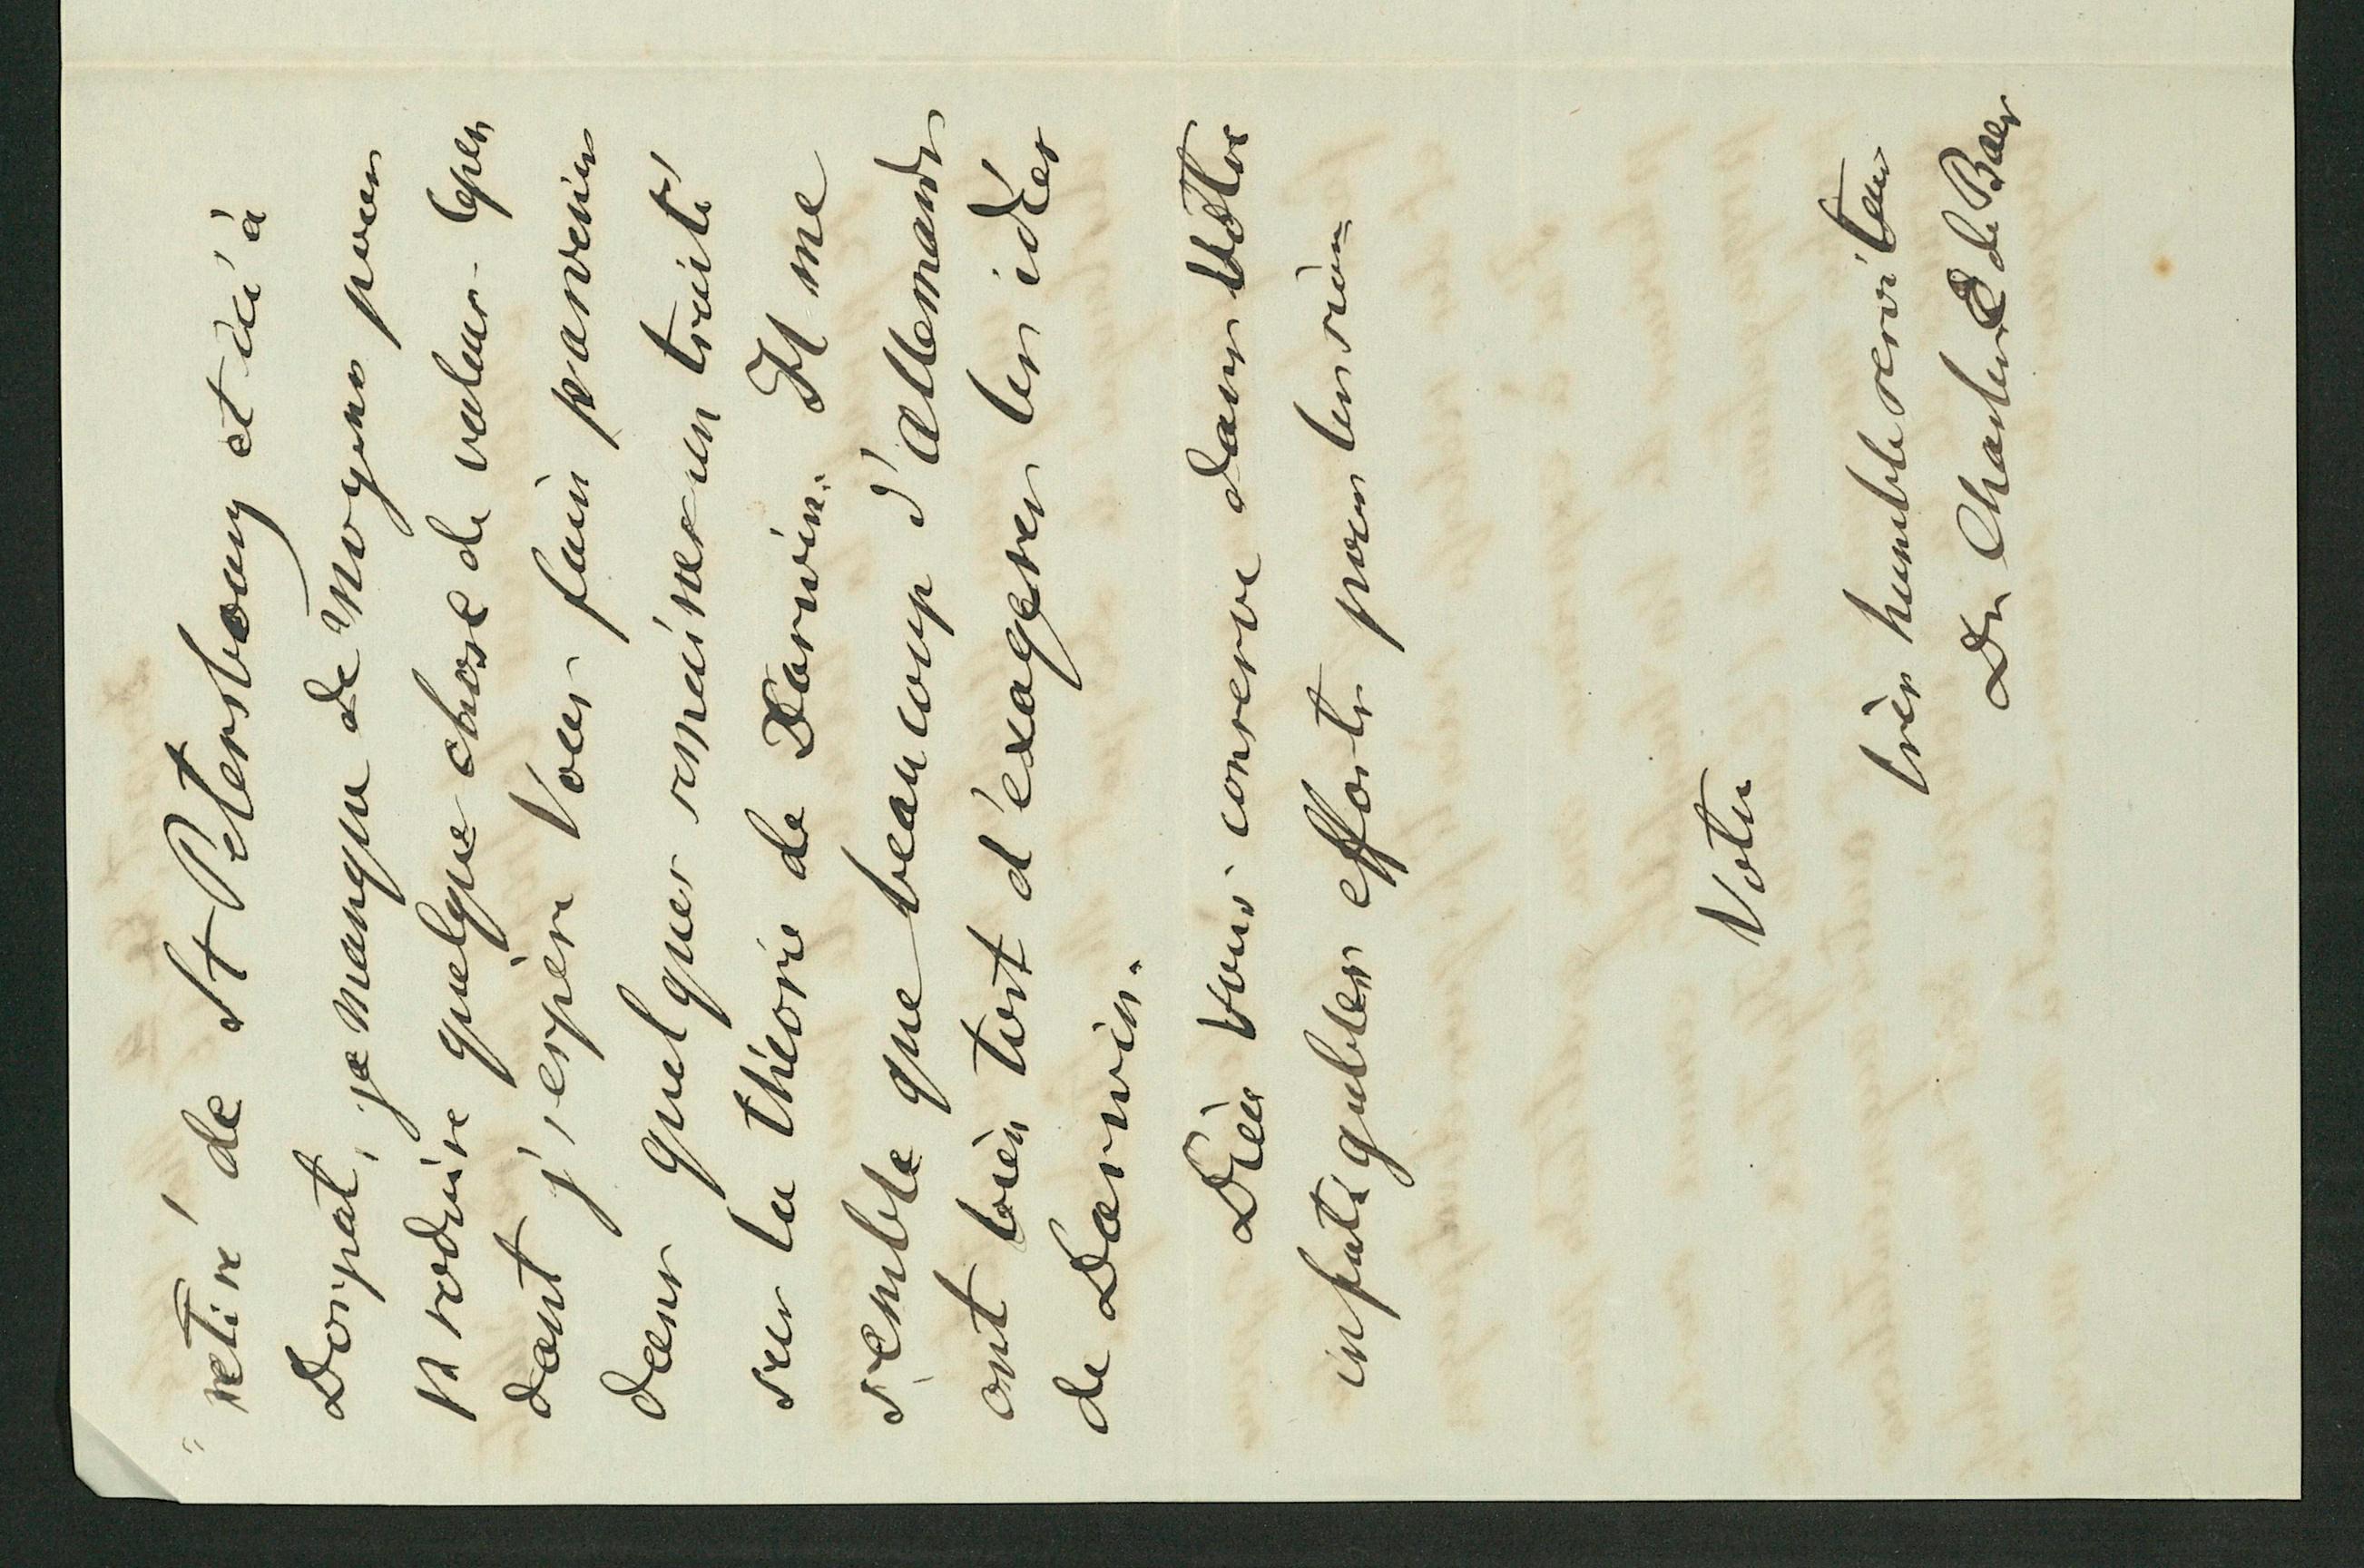 retiré de St Petersbourg et ici à
Dorpat, je manque de moyens pour
produire quelque chose de valeur. Cepen
dant j'espère Vous faire parvenir
dans quelques semaines un traité
sur la théorie de Darwin. Il me
semble que beaucoup d'Allemands
ont bien tort d'exagerer les idées
de Darwin.
Dieu Vous conserve dans Votre
infatigables efforts pour les scien=
Votre
très humble serviteur
Dr Charles E de Baer